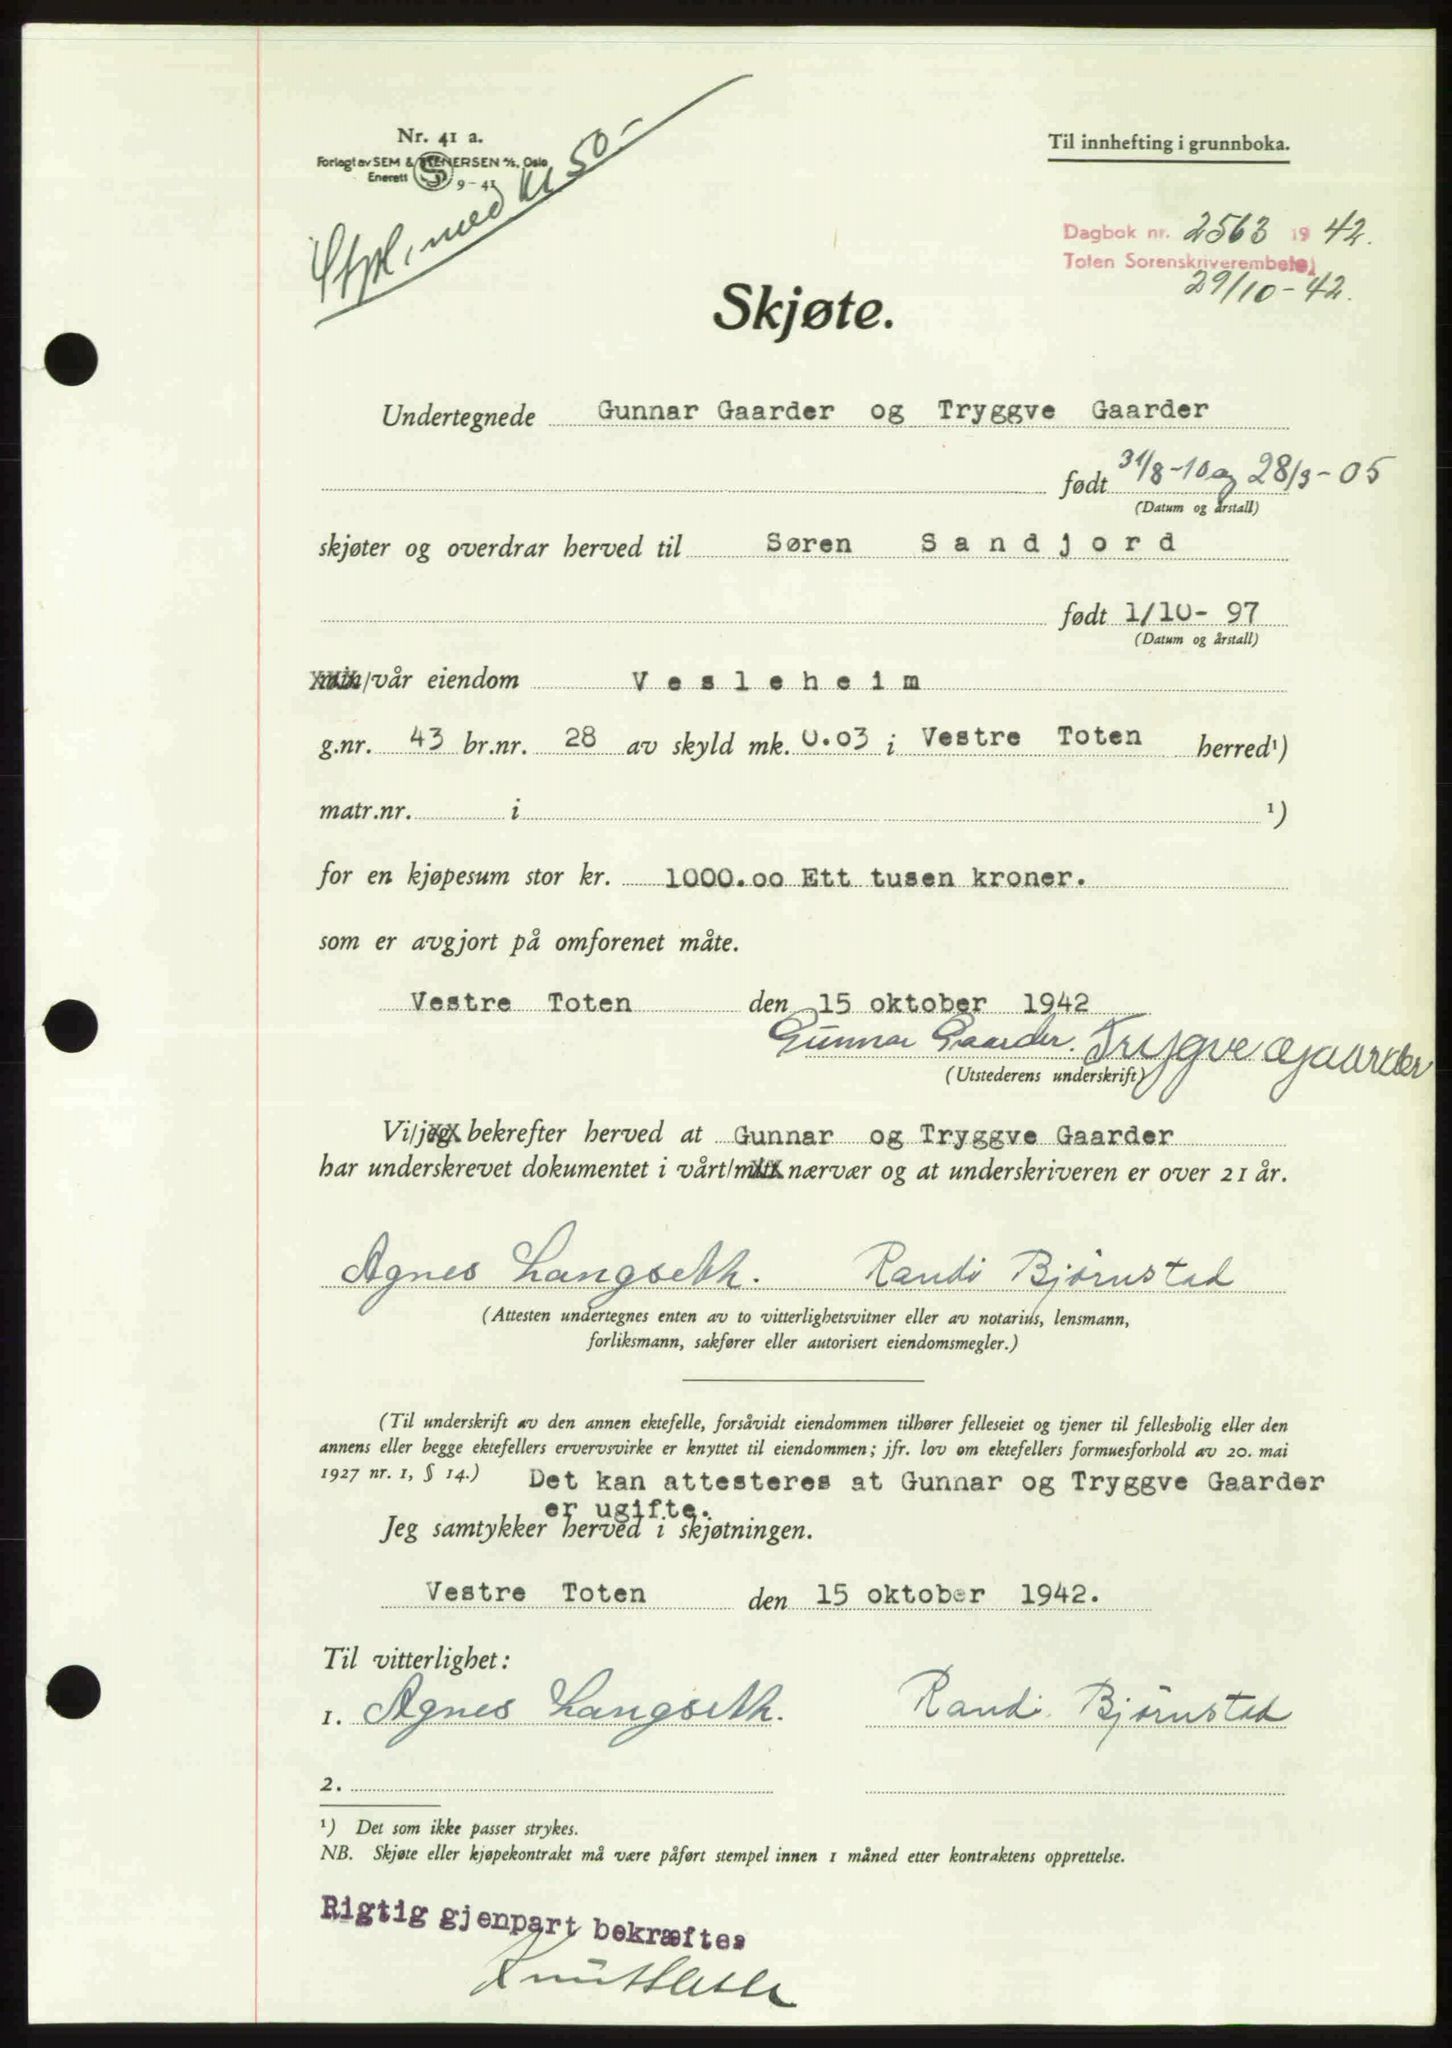 Nr. 41 a.
Forlagt av SEM & STENERSEN A/S, Oslo
Enerett 9-41
Stpl. med kr 50.-
Til innhefting i grunnboka.
Dagbok nr. 2563 1942.
Toten Sorenskriverembete
29/10-42.
Skjøte.
Undertegnede Gunnar Gaarder og Tryggve Gaarder
født 31/8-10 og 28/3-05
(Datum og årstall)
skjøter og overdrar herved til Søren Sandjord
født 1/10- 97
(Datum og årstall)
min/vår eiendom Vesleheim
g.nr. 43 br.nr. 28 av skyld mk. 0.03 i Vestre Toten herred¹)
matr.nr. i ¹)
for en kjøpesum stor kr. 1000.00 Ett tusen kroner.
som er avgjort på omforenet måte.
Vestre Toten den 15 oktober 1942
Gunnar Gaarder. Trygve Gaarder
(Utstederens underskrift)
Vi/jeg bekrefter herved at Gunnar og Tryggve Gaarder
har underskrevet dokumentet i vårt/mitt nærvær og at underskriveren er over 21 år.
Agnes Langseth. Randi Bjørnstad
(Attesten undertegnes enten av to vitterlighetsvitner eller av notarius, lensmann,
forliksmann, sakfører eller autorisert eiendomsmegler.)
(Til underskrift av den annen ektefelle, forsåvidt eiendommen tilhører felleseiet og tjener til fellesbolig eller den
annens eller begge ektefellers ervervsvirke er knyttet til eiendommen; jfr. lov om ektefellers formuesforhold av 20. mai
1927 nr. 1, § 14.) Det kan attesteres at Gunnar og Tryggve Gaarder
er ugifte.
Jeg samtykker herved i skjøtningen.
Vestre Toten den 15 oktober 1942.
Til vitterlighet:
1. Agnes Langseth. Randi Bjørnstad
2.
¹) Det som ikke passer strykes.
NB. Skjøte eller kjøpekontrakt må være påført stempel innen 1 måned etter kontraktens opprettelse.
Rigtig gjenpart bekræftes